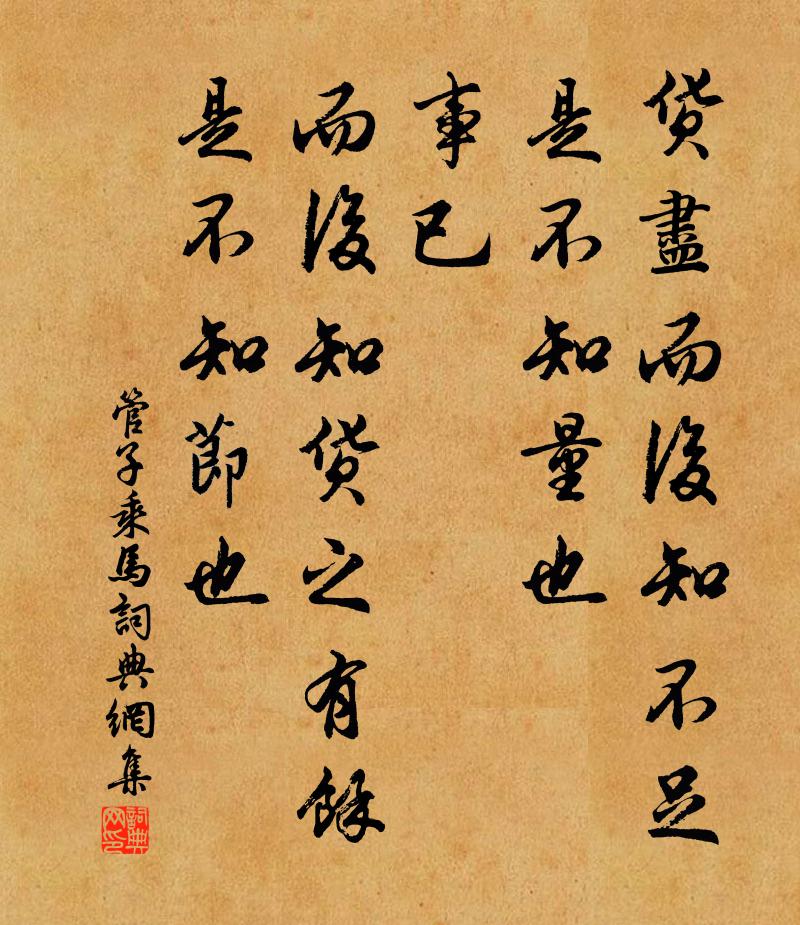 貨盡而後知不足
是不知量也
事已
而後知貨之有餘
是不知節也
管子乘馬詞典網集
詞典网印